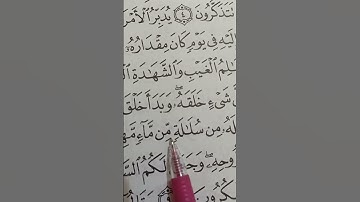 نَتَذَكَّرُونَ ٤ يُدَبِّرُ الْأَمْرَ
إِلَيْهِ فِي يَوْمٍ كَانَ مِقْدَارُهُ
عَالِمُ الْغَيْبِ وَالشَّهَادَةِ
شَيْءٍ خَلَقَهُ وَبَدَأَ خَلْقَ
مِن سُلَالَةٍ مِّن مَّاءٍ
رُّوحِهِ وَجَعَلَ لَكُمُ